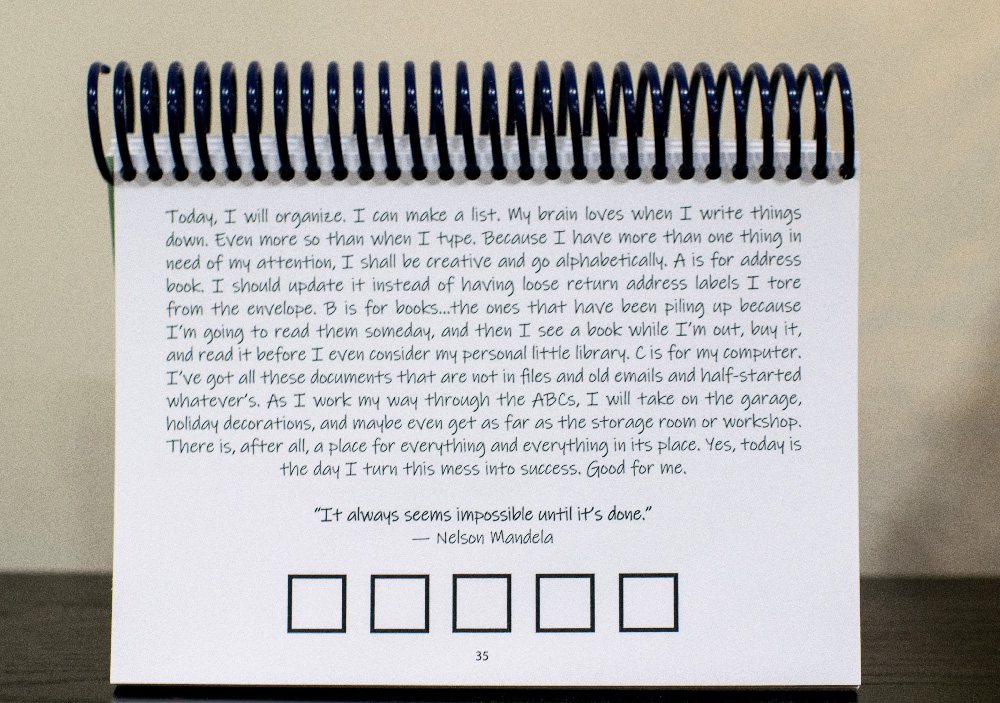 Today, I will organize. I can make a list. My brain loves when I write things
down. Even more so than when I type. Because I have more than one thing in
need of my attention, I shall be creative and go alphabetically. A is for address
book. I should update it instead of having loose return address labels I tore
from the envelope. B is for books...the ones that have been piling up because
I'm going to read them someday, and then I see a book while I'm out, buy it,
and read it before I even consider my personal little library. C is for my computer.
I've got all these documents that are not in files and old emails and half-started
whatever's. As I work my way through the ABCs, I will take on the garage,
holiday decorations, and maybe even get as far as the storage room or workshop.
There is, after all, a place for everything and everything in its place. Yes, today is
the day I turn this mess into success. Good for me.
"It always seems impossible until it's done."
— Nelson Mandela
35